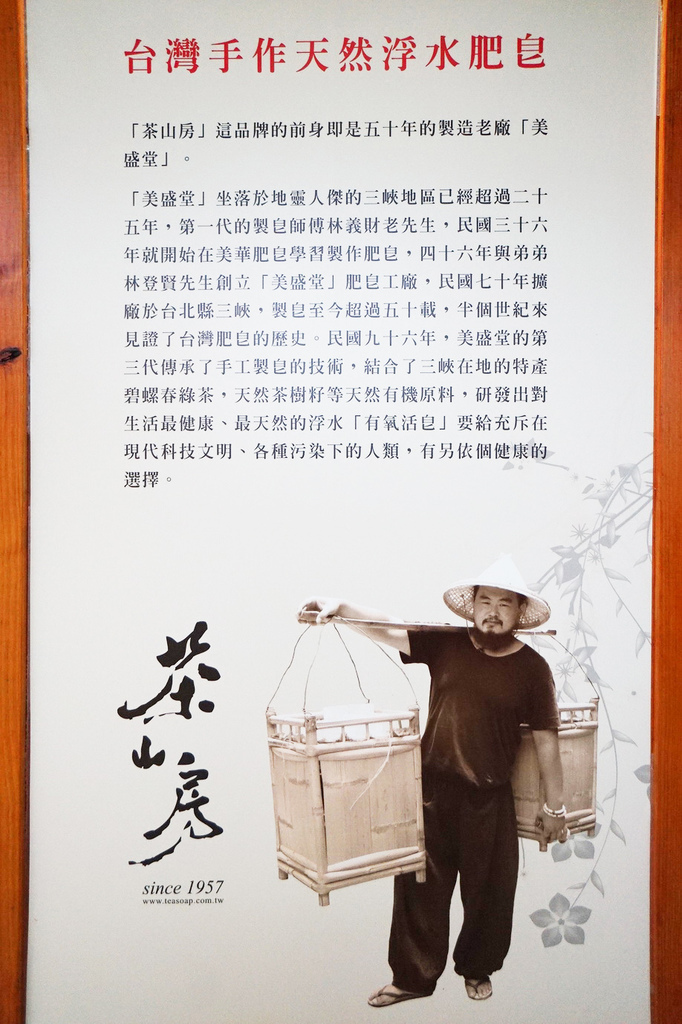 台灣手作天然浮水肥皂
「茶山房」這品牌的前身即是五十年的製造老廠「美
盛堂」。
「美盛堂」坐落於地靈人傑的三峽地區已經超過二十
五年，第一代的製皂師傅林義財老先生，民國三十六
年就開始在美華肥皂學習製作肥皂，四十六年與弟弟
林登賢先生創立「美盛堂」肥皂工廠，民國七十年擴
廠於台北縣三峽，製皂至今超過五十載，半個世紀來
見證了台灣肥皂的歷史。民國九十六年，美盛堂的第
三代傳承了手工製皂的技術，結合了三峽在地的特產
碧螺春綠茶，天然茶樹籽等天然有機原料，研發出對
生活最健康、最天然的浮水「有氧活皂」要給充斥在
現代科技文明、各種污染下的人類，有另依個健康的
選擇。
茶山房
since 1957
www.teasoap.com.tw